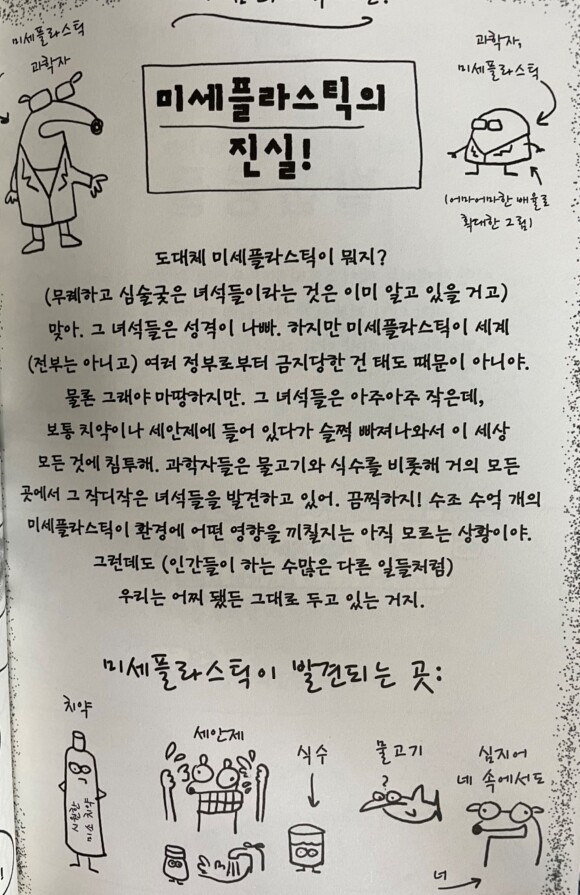 미세플라스틱
과학자
과학자,
미세플라스틱
(어마어마한 배율로
확대한 그림)
미세플라스틱의
진실!
도대체 미세플라스틱이 뭐지?
(무례하고 심술궂은 녀석들이라는 것은 이미 알고 있을 거고)
맞아. 그 녀석들은 성격이 나빠. 하지만 미세플라스틱이 세계
(전부는 아니고) 여러 정부로부터 금지당한 건 태도 때문이 아니야.
물론 그래야 마땅하지만. 그 녀석들은 아주아주 작은데,
보통 치약이나 세안제에 들어 있다가 슬쩍 빠져나와서 이 세상
모든 것에 침투해. 과학자들은 물고기와 식수를 비롯해 거의 모든
곳에서 그 작디작은 녀석들을 발견하고 있어. 끔찍하지! 수조 수억 개의
미세플라스틱이 환경에 어떤 영향을 끼칠지는 아직 모르는 상황이야.
그런데도 (인간들이 하는 수많은 다른 일들처럼)
우리는 어찌 됐든 그대로 두고 있는 거지.
미세플라스틱이 발견되는 곳:
치약
세안제
식수
물고기
?
심지어
네 속에서도
너